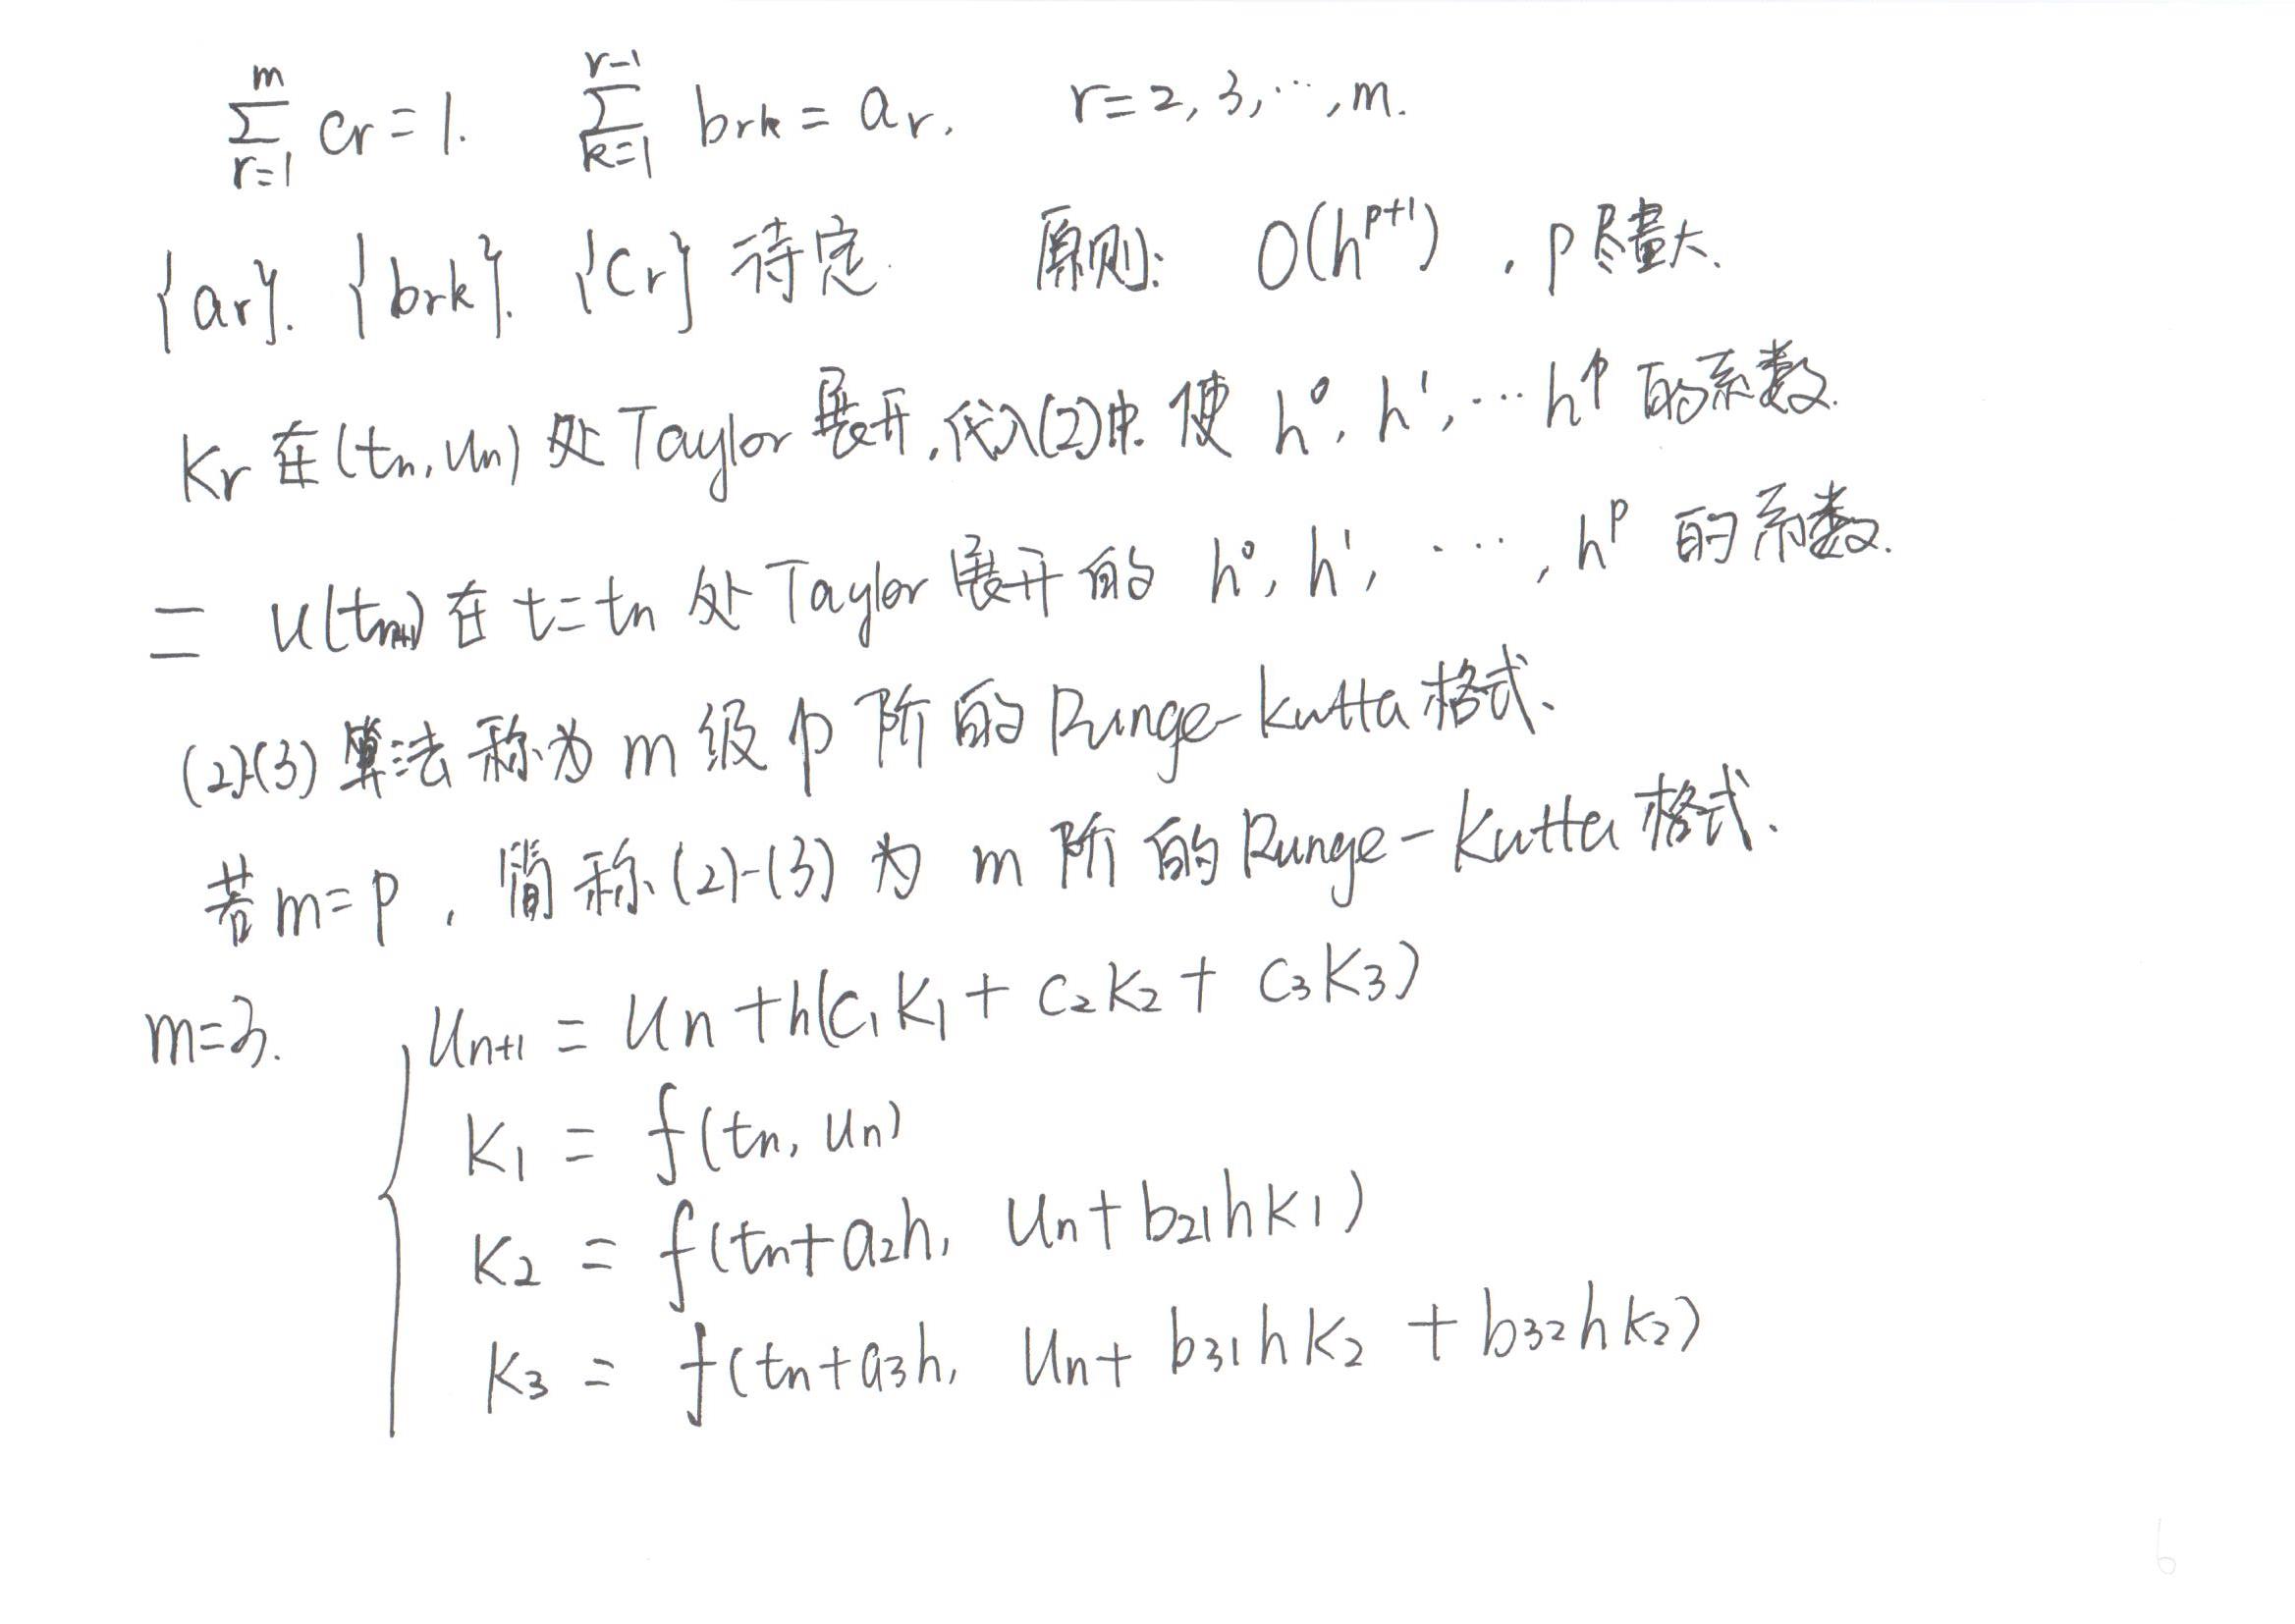 ∑_{r=1}^{m} c_r = 1. ∑_{k=1}^{r-1} b_{rk} = a_r. r=2,3,⋯,m.
{a_r}. {b_{rk}}. {c_r} 待定. 原则: O(h^{p+1}), p尽量大.
K_r 在(t_n, u_n) 处 Taylor 展开, 代入(2)中. 使 h^0, h^1, ⋯ h^p 的系数.
= u(t_{n+1}) 在 t=t_n 处 Taylor 展开 的 h^0, h^1, ⋯, h^p 的系数.
(2)-(3) 算法称为 m 级 p 阶 的 Runge-Kutta 格式.
若 m=p, 简称 (2)-(3) 为 m 阶 的 Runge-Kutta 格式.
m=3. u_{n+1} = u_n + h(c_1 K_1 + c_2 K_2 + c_3 K_3)
K_1 = f(t_n, u_n)
K_2 = f(t_n + a_2 h, u_n + b_{21} h K_1)
K_3 = f(t_n + a_3 h, u_n + b_{31} h K_2 + b_{32} h K_2)
6